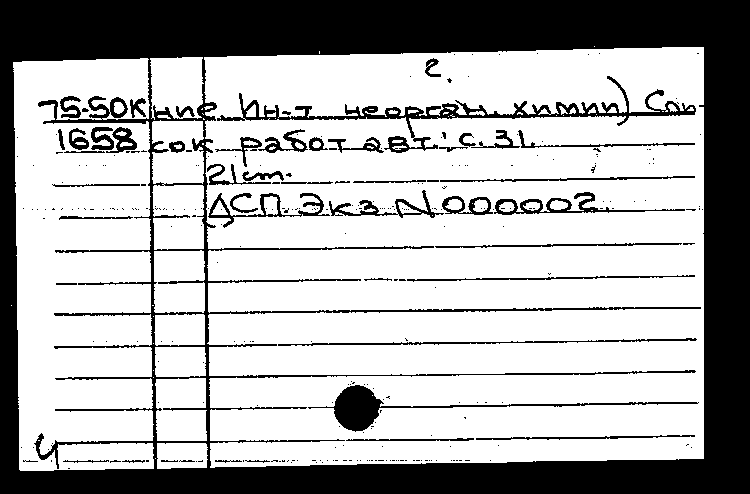 2.
75-50К ние. Ин-т неорган. химии) Спи-
1658 сок работ авт.: с. 31.
21 cm.
ДСП. Экз. N 000002.
Ч